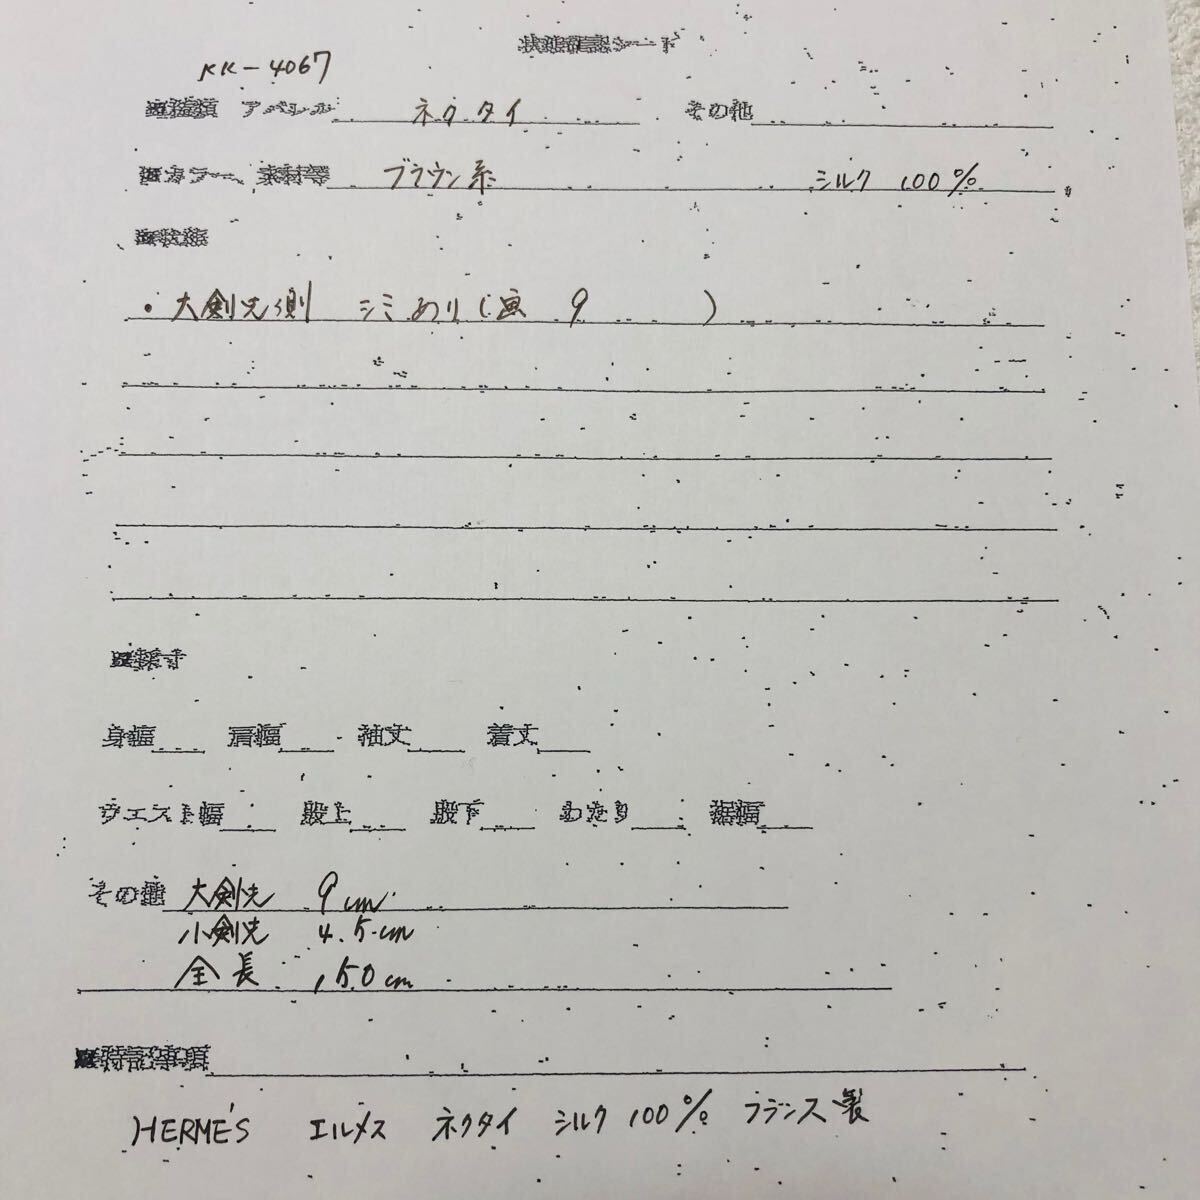 状態確認シート
KK-4067
■種類 アパレル ネクタイ その他
■カラー、素材等 ブラウン系 シルク 100%
■状態
・大剣先側 シミあり(画 9 )
■採寸
身幅 肩幅 袖丈 着丈
ウエスト幅 股上 股下 わたり 裾幅
その他 大剣先 9cm
小剣先 4.5cm
全長 150cm
■特記事項
HERMÈS エルメス ネクタイ シルク 100% フランス製